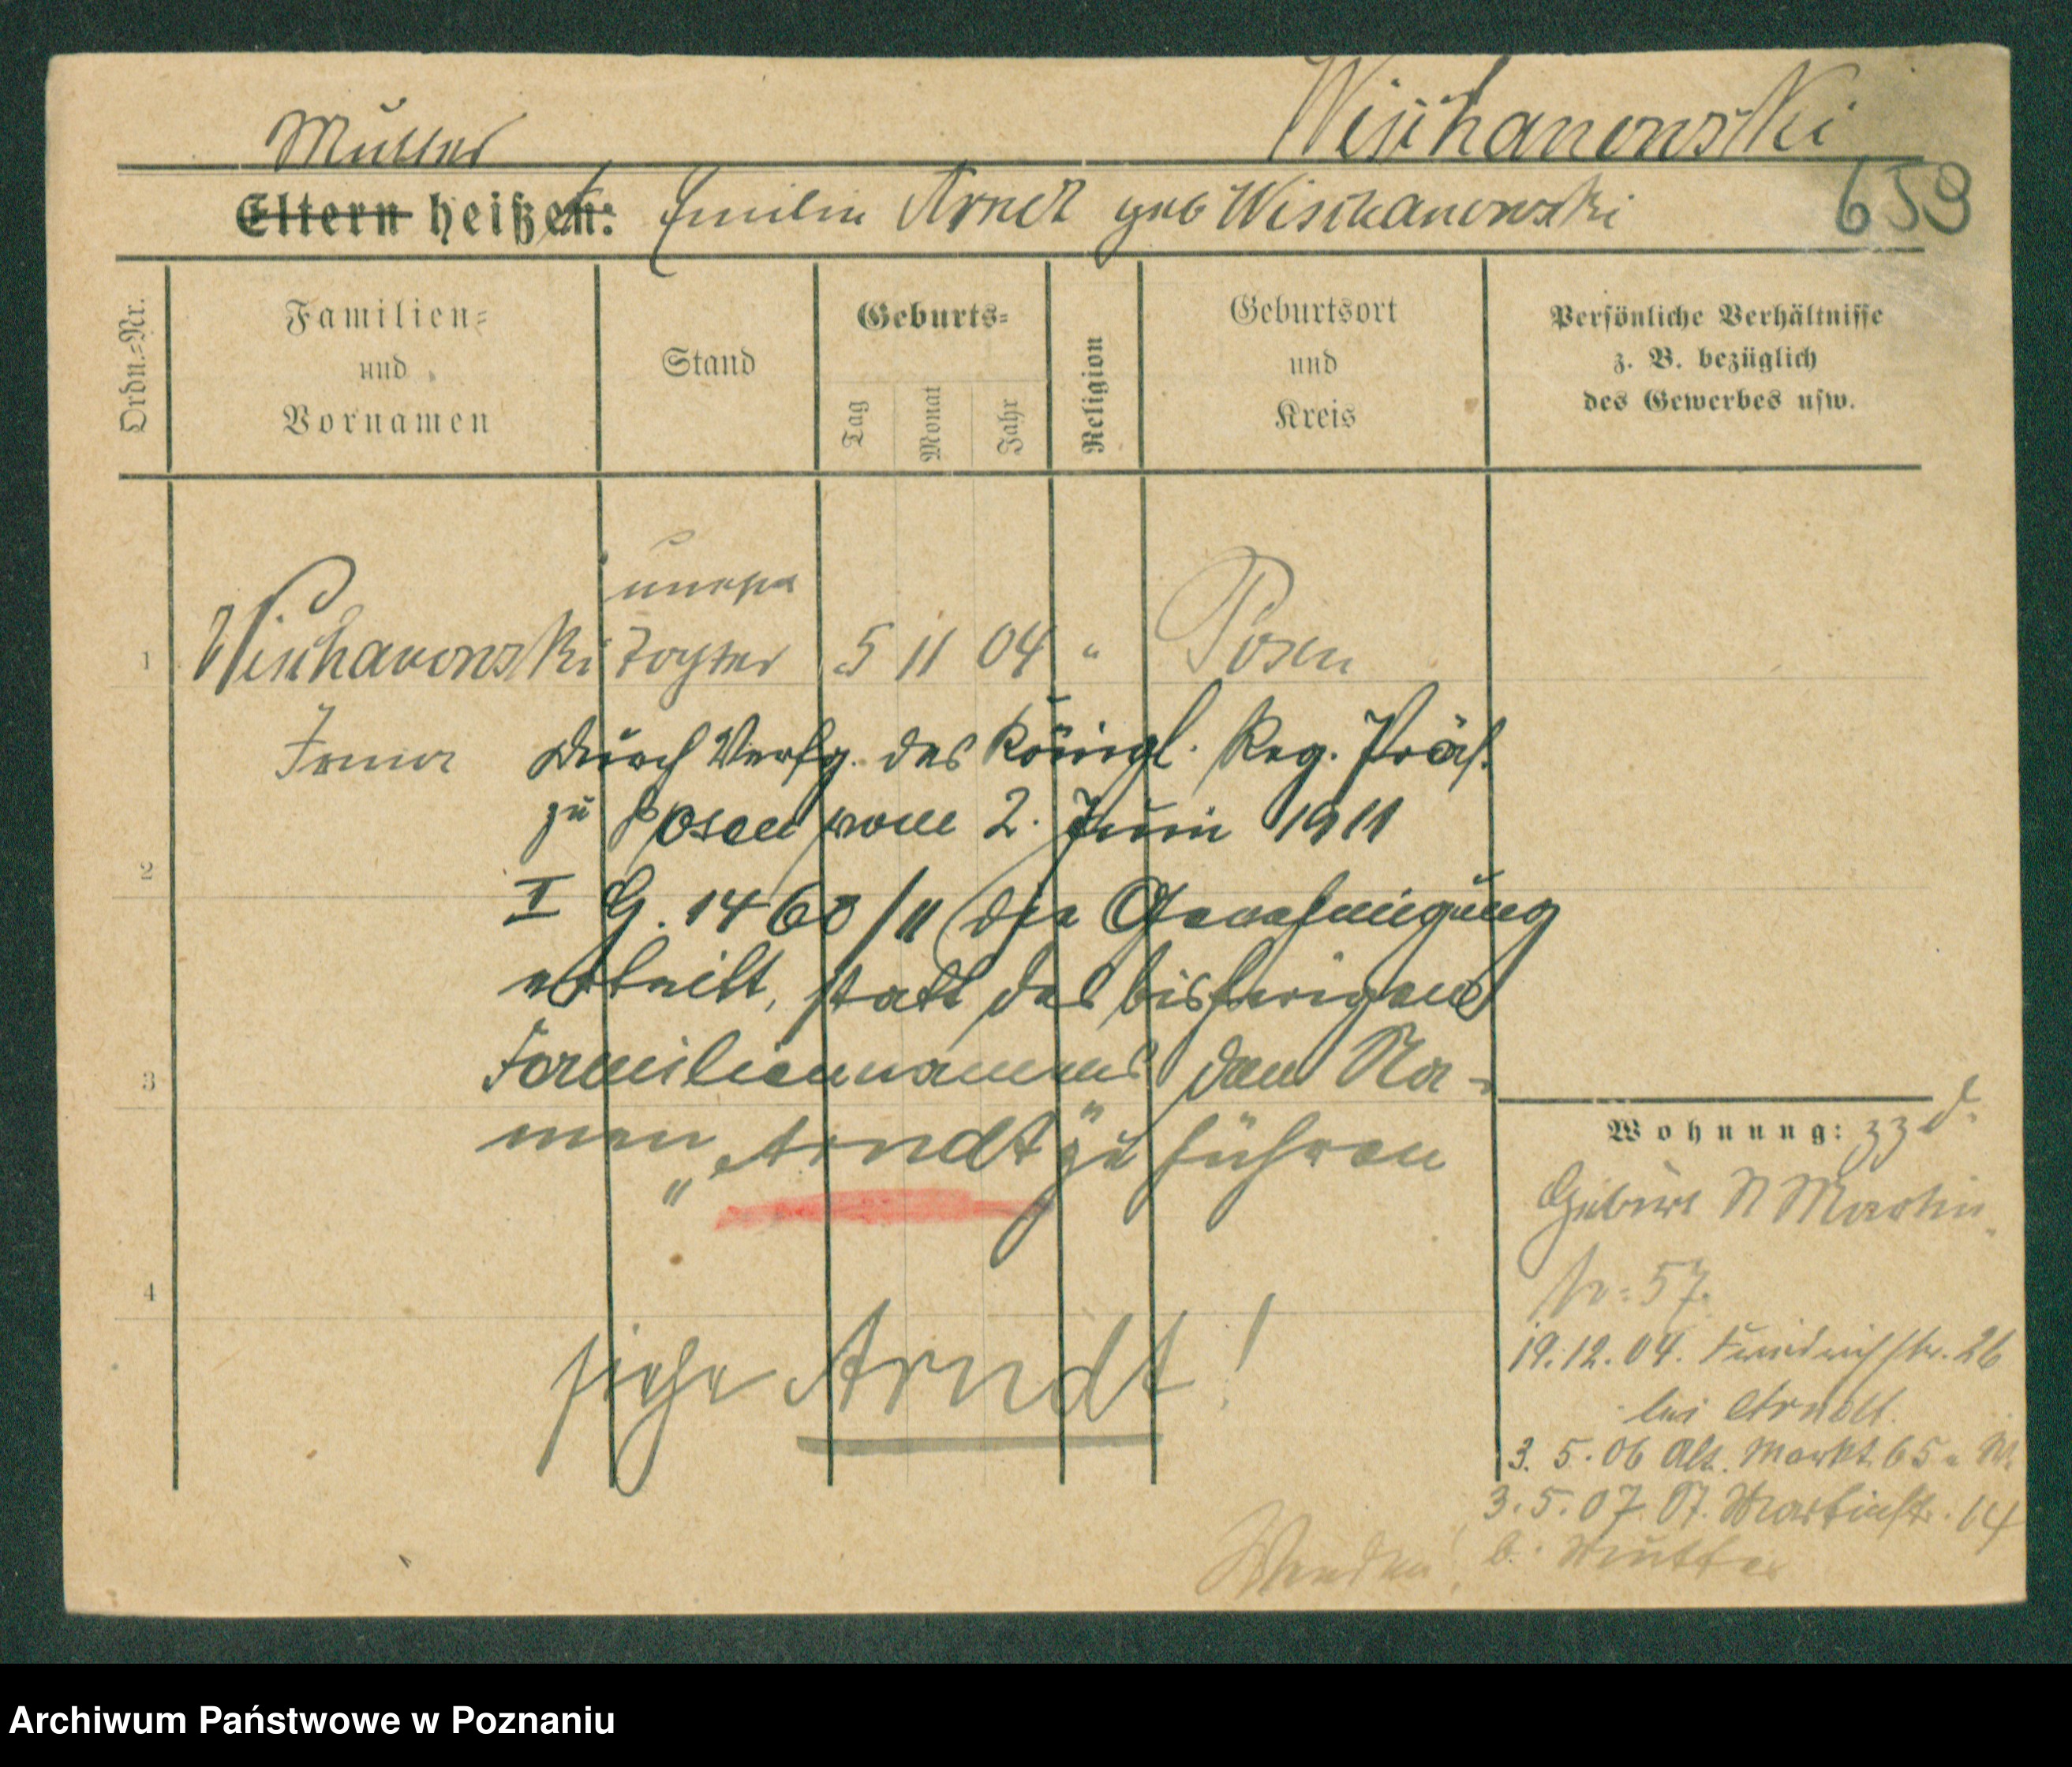 Mutter Wischanowski
Eltern heißt: Emilie Arndt geb Wischanowski 659
Ordn.-Nr.
Familien=
und
Vornamen
Stand
Geburts=
Tag
Monat
Jahr
Religion
Geburtsort
und
Kreis
Persönliche Verhältnisse
z. B. bezüglich
des Gewerbes usw.
unehe
1 Wischanowski Tochter 5 11 04 " Posen
Irma Durch Verfg. des Königl. Reg. Präs.
zu Posen vom 2. Juni 1911
2
I G. 1460/11 die Genehmigung
erteilt, statt des bisherigen
3 Familiennamens den Na-
men „Arndt" zu führen
4
siehe Arndt!
Wohnung: zzd.
Geburt St Martin
57.
19.12.04. Friedrichstr. 26
bei Arndt.
3. 5. 06 Alt. Markt 65 a. M.
3. 5. 07. St. Martinstr. 14
b. Mutter
Wenden!
Archiwum Państwowe w Poznaniu